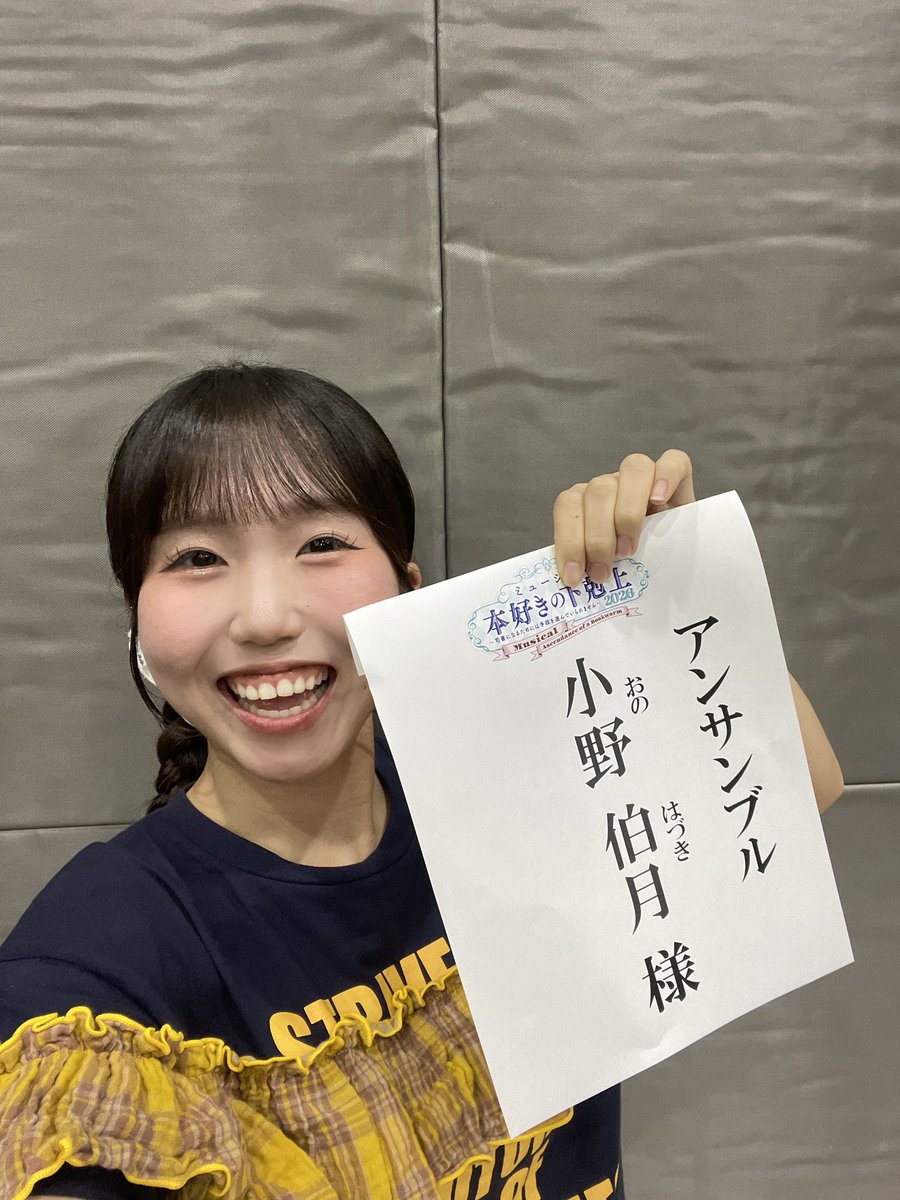 本好きの下剋上
~司書になるためには手段を選んでいられません~
2026
Musical
Ascendance of a Bookworm
アンサンブル
小野 伯月 様
おの
はづき